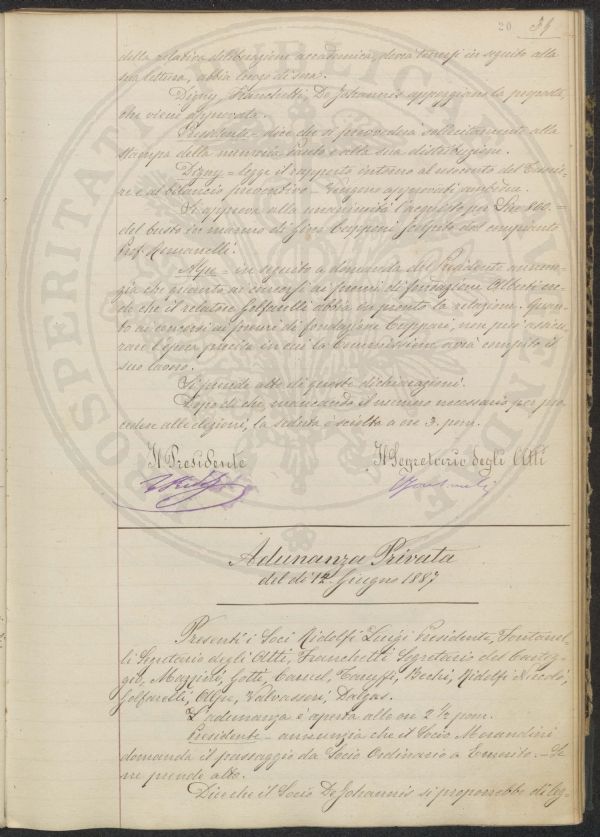 20 39
della relativa deliberazione accademica, dovrà tenersi in seguito alla
sua lettura, abbia luogo di sua.
Digny, Franchetti, De Johannis appoggiano la proposta,
che viene approvata.
Presidente - dice che si provvederà sollecitamente alla
stampa della memoria e alla sua distribuzione.
Digny = legge il rapporto intorno al resoconto del
e al bilancio preventivo - Vengono approvati ambedue.
Si approva alla unanimità l'acquisto per Lire 800.=
del busto in marmo di Gino Capponi scolpito dal compianto
Prof. Romanelli.
Alpe - in seguito a domanda del Presidente annun-
zia che quanto ai concorsi ai premi di fondazione Alberti cre-
de che il relatore Golfarelli abbia in pronto la relazione. Quan-
to ai concorsi ai premi di fondazione Cuppari, non può assicu-
rare l'epoca precisa in cui la Commissione avrà compito il
suo lavoro.
Si prende atto di queste dichiarazioni.
Dopo di che, mancando il numero necessario per pro-
cedere alle elezioni, la seduta è sciolta a ore 3. pom.
Il Presidente Il Segretario degli Atti
Adunanza Privata
del dì 12 Giugno 1887
Presenti i Soci Ridolfi Luigi Presidente, Fontanel-
li Segretario degli Atti, Franchetti Segretario del Carteg-
gio, Mazzini, Gotti, Caruel, Taruffi, Bechi, Ridolfi Niccolò,
Golfarelli, Alpe, Valvassori, Dalgas.
L'adunanza è aperta alle ore 2 ½ pom.
Presidente - annunzia che il Socio Morandini
domanda il passaggio da Socio Ordinario a Emerito. - Se
ne prende atto.
Dice che il Socio De Johannis si proporrebbe di leg-